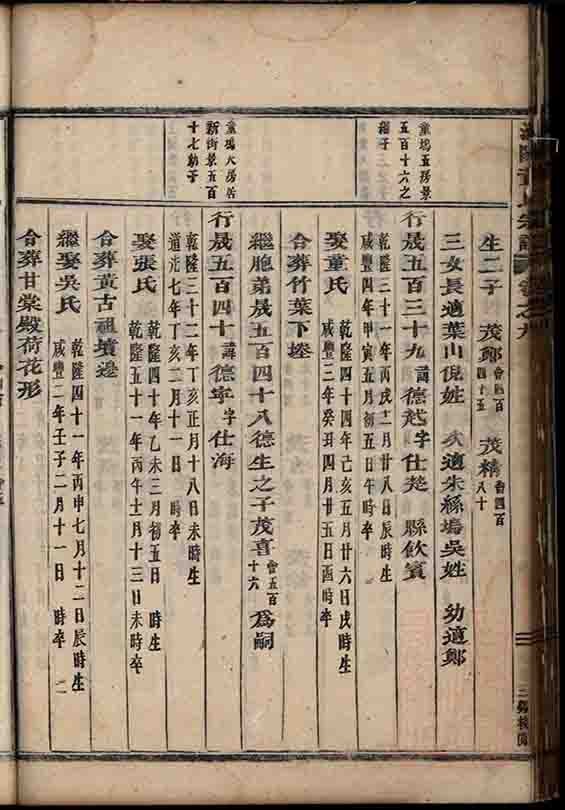 生二子 茂鄭 會四百四十五 茂精 會四百八十
三女長適葉山倪姓 次適朱縣塢吳姓 幼適鄭
童塢五房景
五百十六之
繼子
行晟五百三十九諱德越字仕楚 縣飲賓
乾隆三十一年丙戌二月廿八日辰時生
咸豐四年甲寅五月初五日午時卒
娶董氏 乾隆四十四年己亥五月廿六日戌時生
咸豐三年癸丑四月廿五日酉時卒
合葬竹葉下塋
繼胞弟晟五百四十八德生之子茂喜 會五百十六 為嗣
童塢大房居
新街景五百
十七幼子
行晟五百四十諱德宇字仕海
乾隆三十二年丁亥正月十八日未時生
道光七年丁亥二月十一日 時卒
娶張氏 乾隆四十年乙未三月初五日 時生
乾隆五十一年丙午十二月十三日未時卒
合葬黃古祖墳邊
繼娶吳氏 乾隆四十一年丙申七月十二日辰時生
咸豐二年壬子二月十一日 時卒 二
合葬甘棠殿荷花形